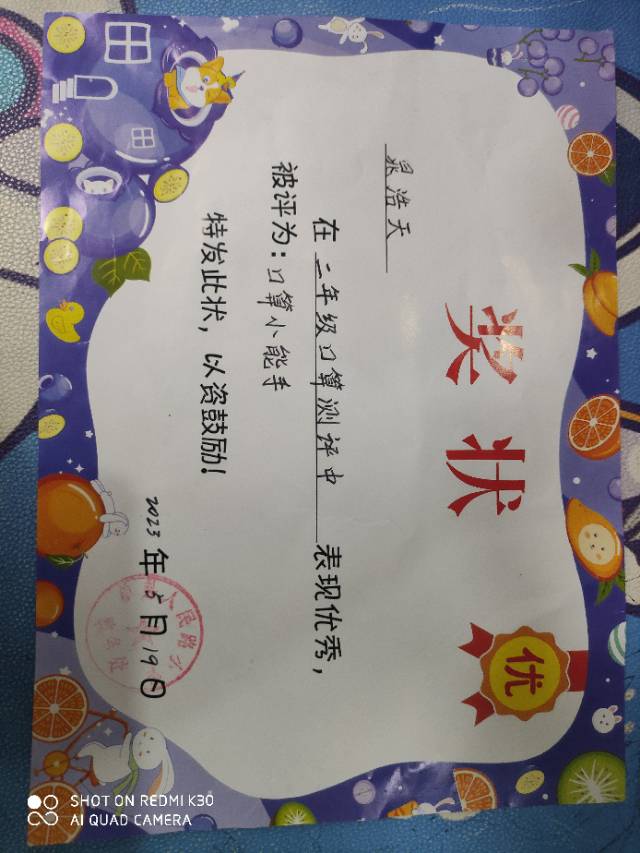 奖状
优
晁浩天
在 二年级口算测评中 表现优秀，
被评为：口算小能手
特发此状，以资鼓励！
2023年5月19日
人民路
SHOT ON REDMI K30
AI QUAD CAMERA